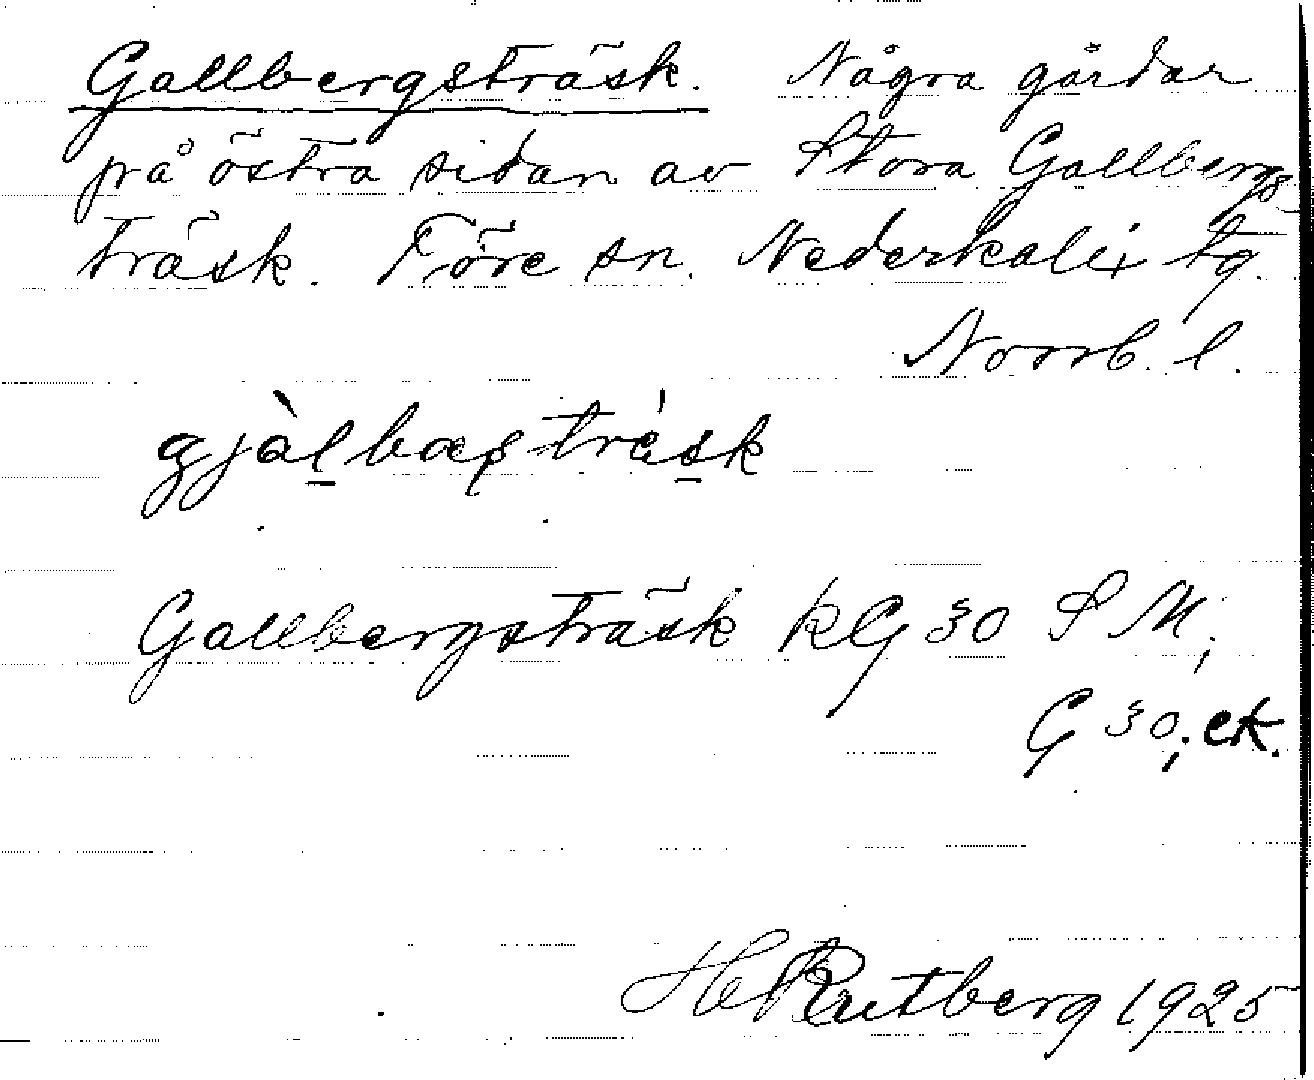 Gallbergsträsk. Några gårdar
på östra sidan av Stora Gallbergs
träsk. Töre sn. Nederkalix tg.
Norrb. l.
Gallbergsträsk kG 30 S M;
G 30; ek.
Rutberg 1925